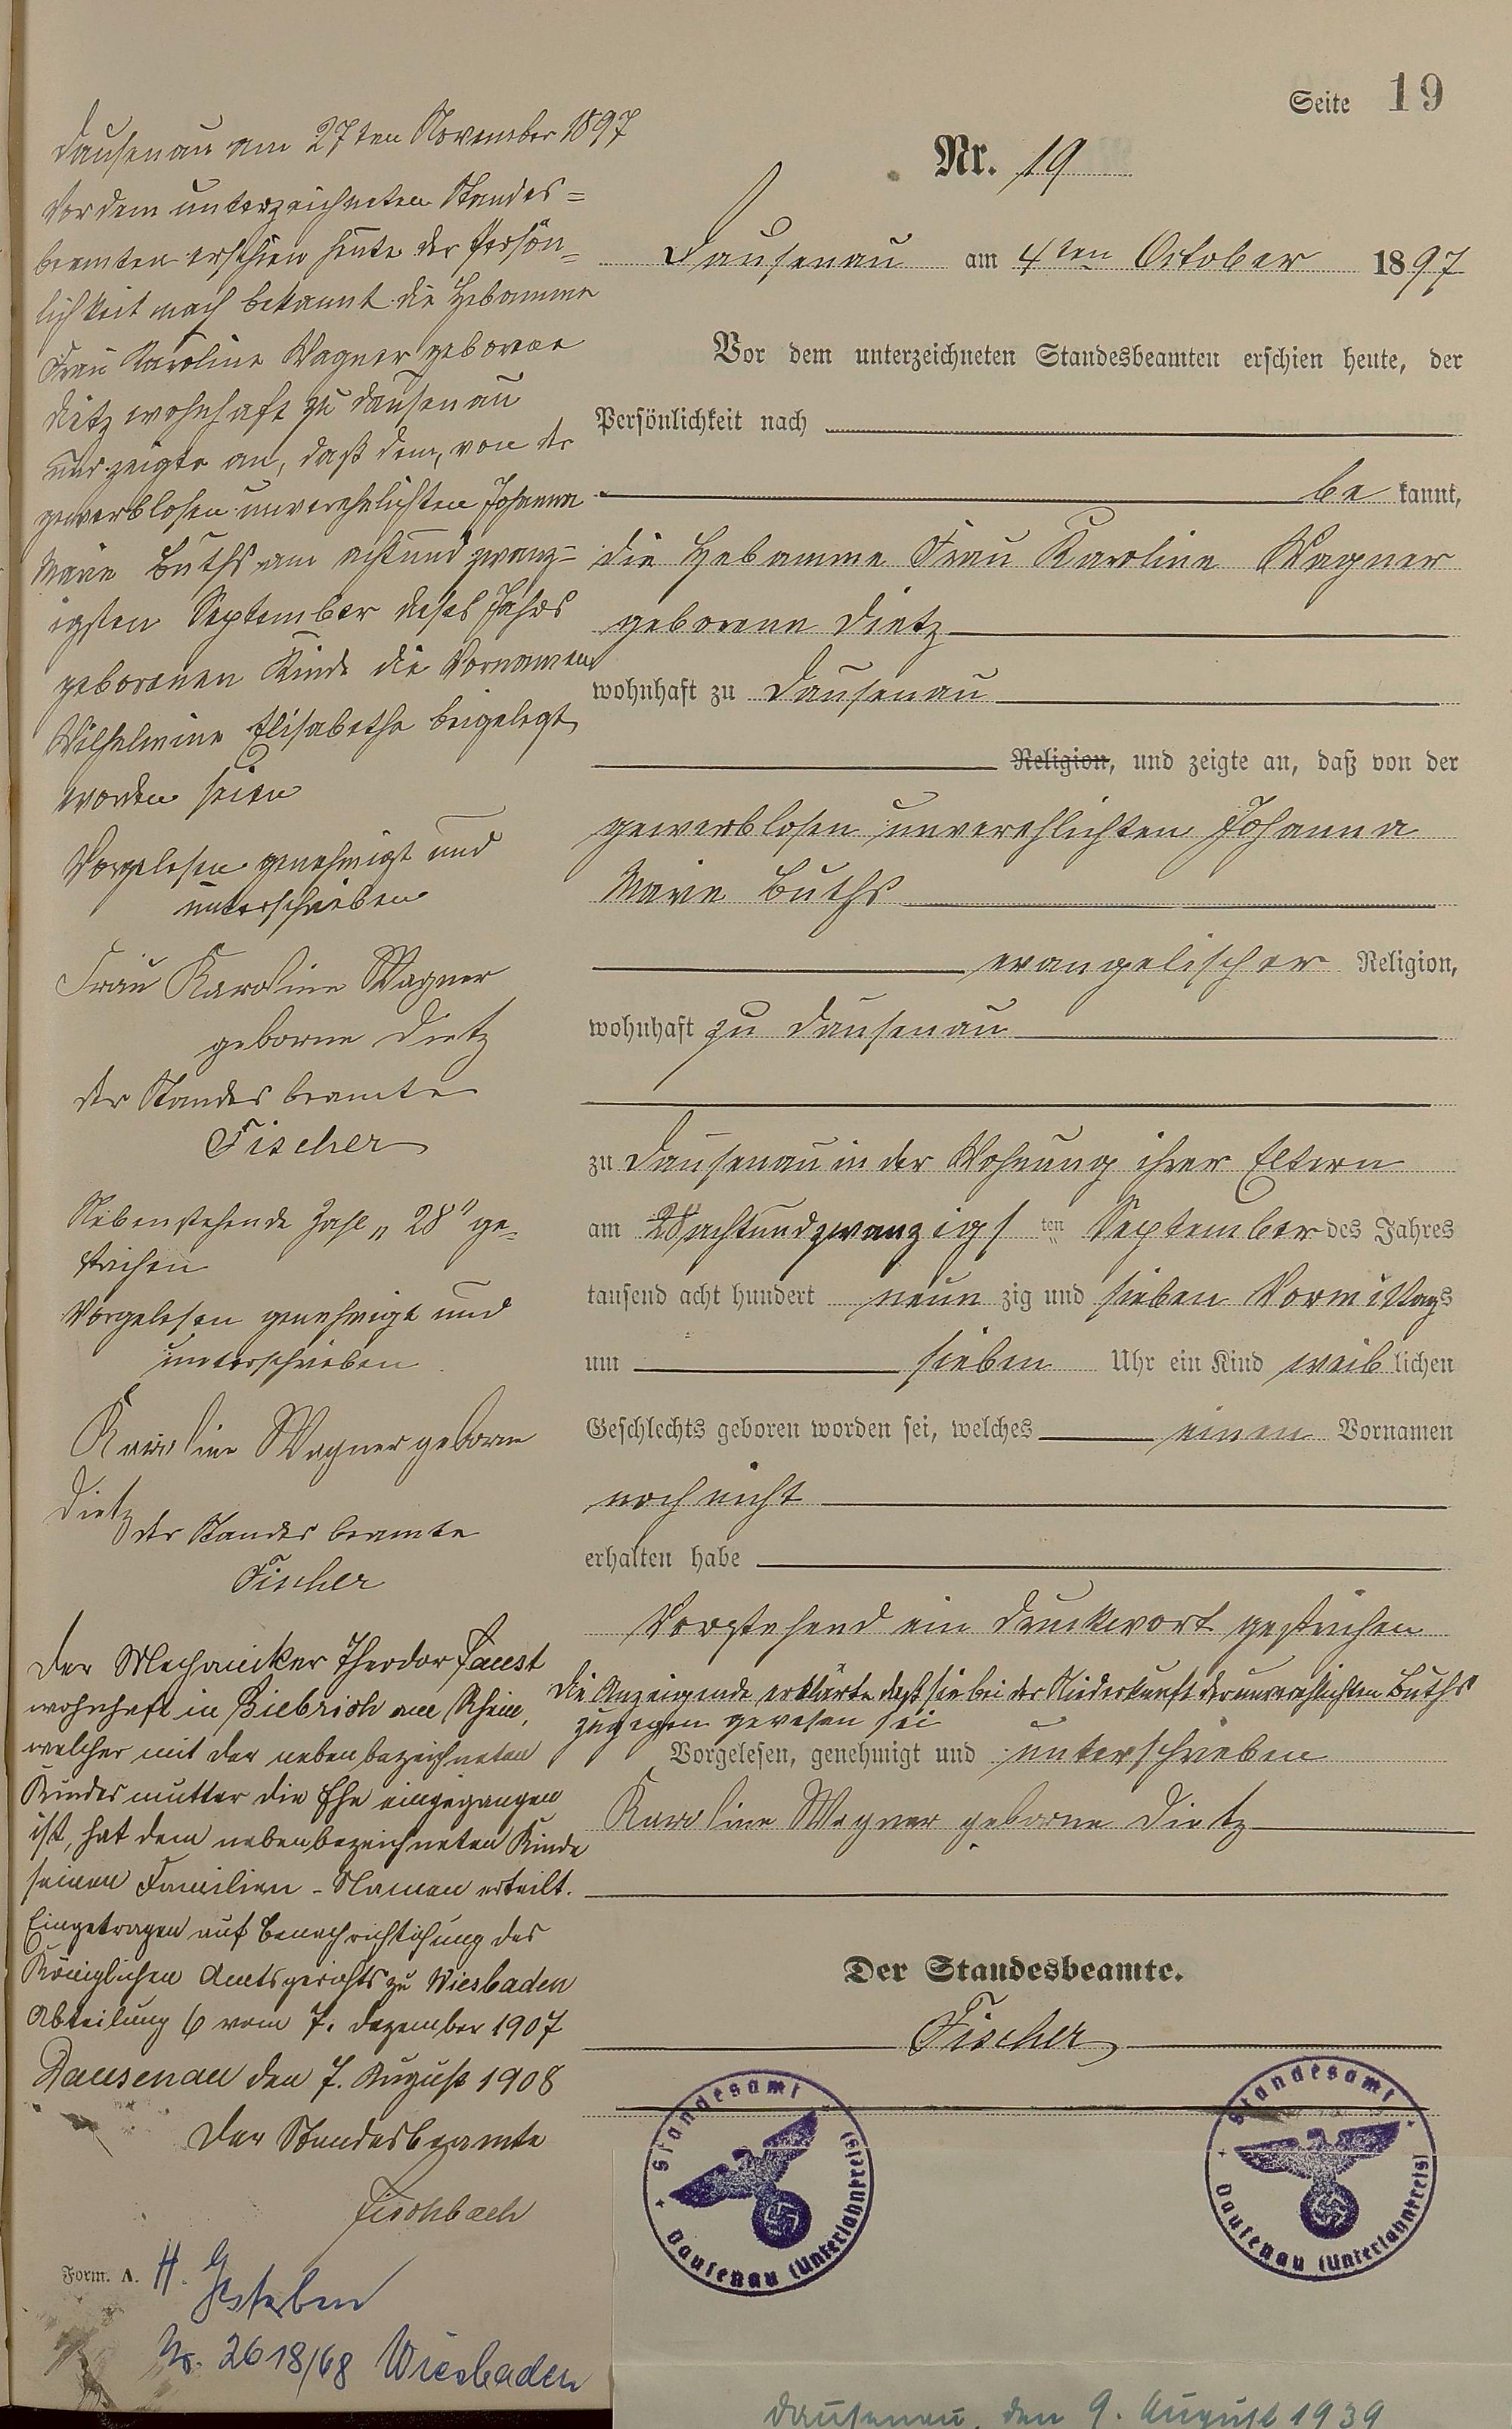 Seite 19
Dausenau am 27ten November 1897
Vor dem unterzeichneten Standes=
beamten erschien heute der Persön=
lichkeit nach bekannt die Hebamme
Frau Karoline Wagner geborne
Dietz wohnhaft zu Dausenau
und zeigte an, daß dem, von der
gewerblosen unverehelichten Johanna
Marie Buths am achtund zwanz=
igsten September dieses Jahres
geborenen Kinde die Vornamen
Wilhelmine Elisabetha beigelegt
worden seien
Vorgelesen genehmigt und
unterschrieben
Frau Karoline Wagner
geborne Dietz
der Standesbeamte
Fischer
Nebenstehende Zahl „28" ge=
strichen
Vorgelesen genehmigt und
unterschrieben
Karoline Wagner geborne
Dietz
der Standesbeamte
Fischer
Der Mechaniker Theodor Faust
wohnhaft in Biebrich am Rhein,
welcher mit der nebenbezeichneten
Kindesmutter die Ehe eingegangen
ist, hat dem nebenbezeichneten Kinde
seinen Familien-Namen erteilt.
Eingetragen auf Benachrichtigung des
Königlichen Amtsgerichts zu Wiesbaden
Abteilung 6 vom 7. Dezember 1907
Dausenau den 7. August 1908
Der Standesbeamte
Fischbach
Form. A.
H. Gestorben
Nr. 2618/68 Wiesbaden
Nr. 19
Dausenau am 4ten October 1897
Vor dem unterzeichneten Standesbeamten erschien heute, der
Persönlichkeit nach
be kannt,
die Hebamme Frau Karoline Wagner
geborene Dietz
wohnhaft zu Dausenau
Religion, und zeigte an, daß von der
gewerblosen unverehlichten Johanna
Marie Buths
evangelischer Religion,
wohnhaft zu Dausenau
zu Dausenau in der Wohnung ihrer Eltern
am 28 achtundzwanzigs ten September des Jahres
tausend acht hundert neun zig und sieben Vormittags
um sieben Uhr ein Kind weib lichen
Geschlechts geboren worden sei, welches einen Vornamen
noch nicht
erhalten habe
Vorstehend ein Druckwort gestrichen
Die Anzeigende erklärte daß sie bei der Niederkunft der unverehlichten Buths
zugegen gewesen sei
Vorgelesen, genehmigt und unterschrieben
Karoline Wagner geborne Dietz
Der Standesbeamte.
Fischer
Standesamt
Dausenau (Unterlahnkreis)
Standesamt
Dausenau (Unterlahnkreis)
Dausenau, den 9. August 1939